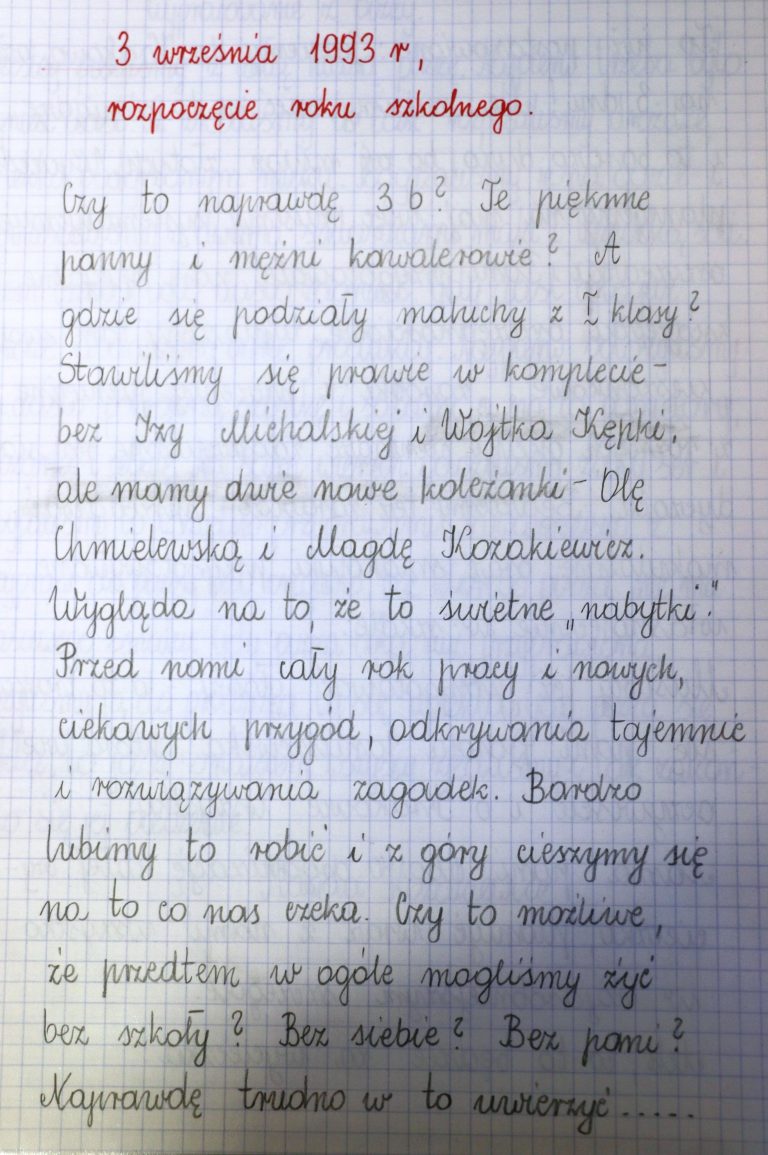 3 września 1993 r,
rozpoczęcie roku szkolnego.
Czy to naprawdę 3 b? Te piękne
panny i mężni kawalerowie? A
gdzie się podziały maluchy z I klasy?
Stawiliśmy się prawie w komplecie -
bez Izy Michalskiej i Wojtka Kępki,
ale mamy dwie nowe koleżanki - Olę
Chmielewską i Magdę Kozakiewicz.
Wygląda na to, że to świetne „nabytki".
Przed nami cały rok pracy i nowych,
ciekawych przygód, odkrywania tajemnic
i rozwiązywania zagadek. Bardzo
lubimy to robić i z góry cieszymy się
na to co nas czeka. Czy to możliwe,
że przedtem w ogóle mogliśmy żyć
bez szkoły? Bez siebie? Bez pani?
Naprawdę trudno w to uwierzyć.....